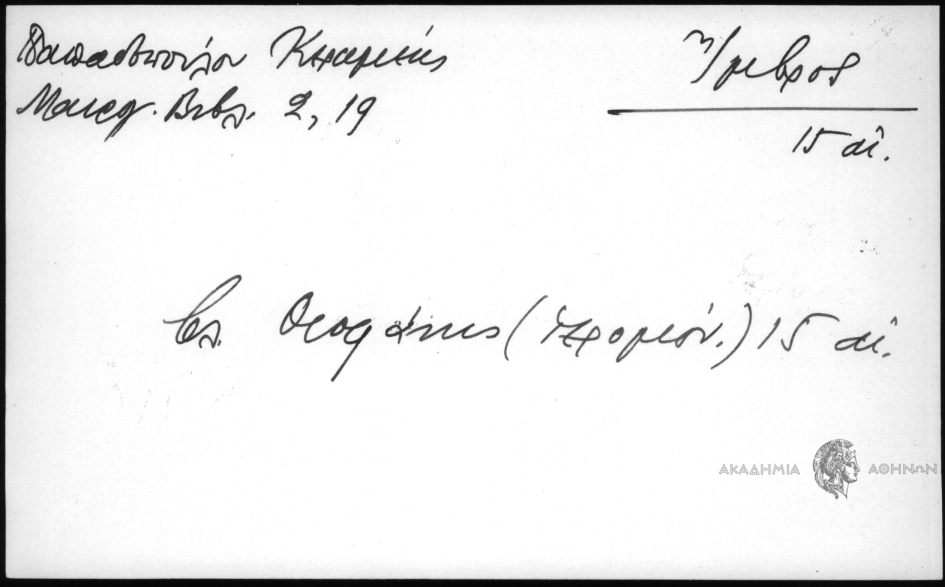 Παπαδοπούλου Κεραμεύς
Μαυρογ. Βιβλ. 2, 19
Ἴμβρος
15 αἰ.
βλ. Θεοφάνης (ἱερομόν.) 15 αἰ.
ΑΚΑΔΗΜΙΑ ΑΘΗΝΩΝ